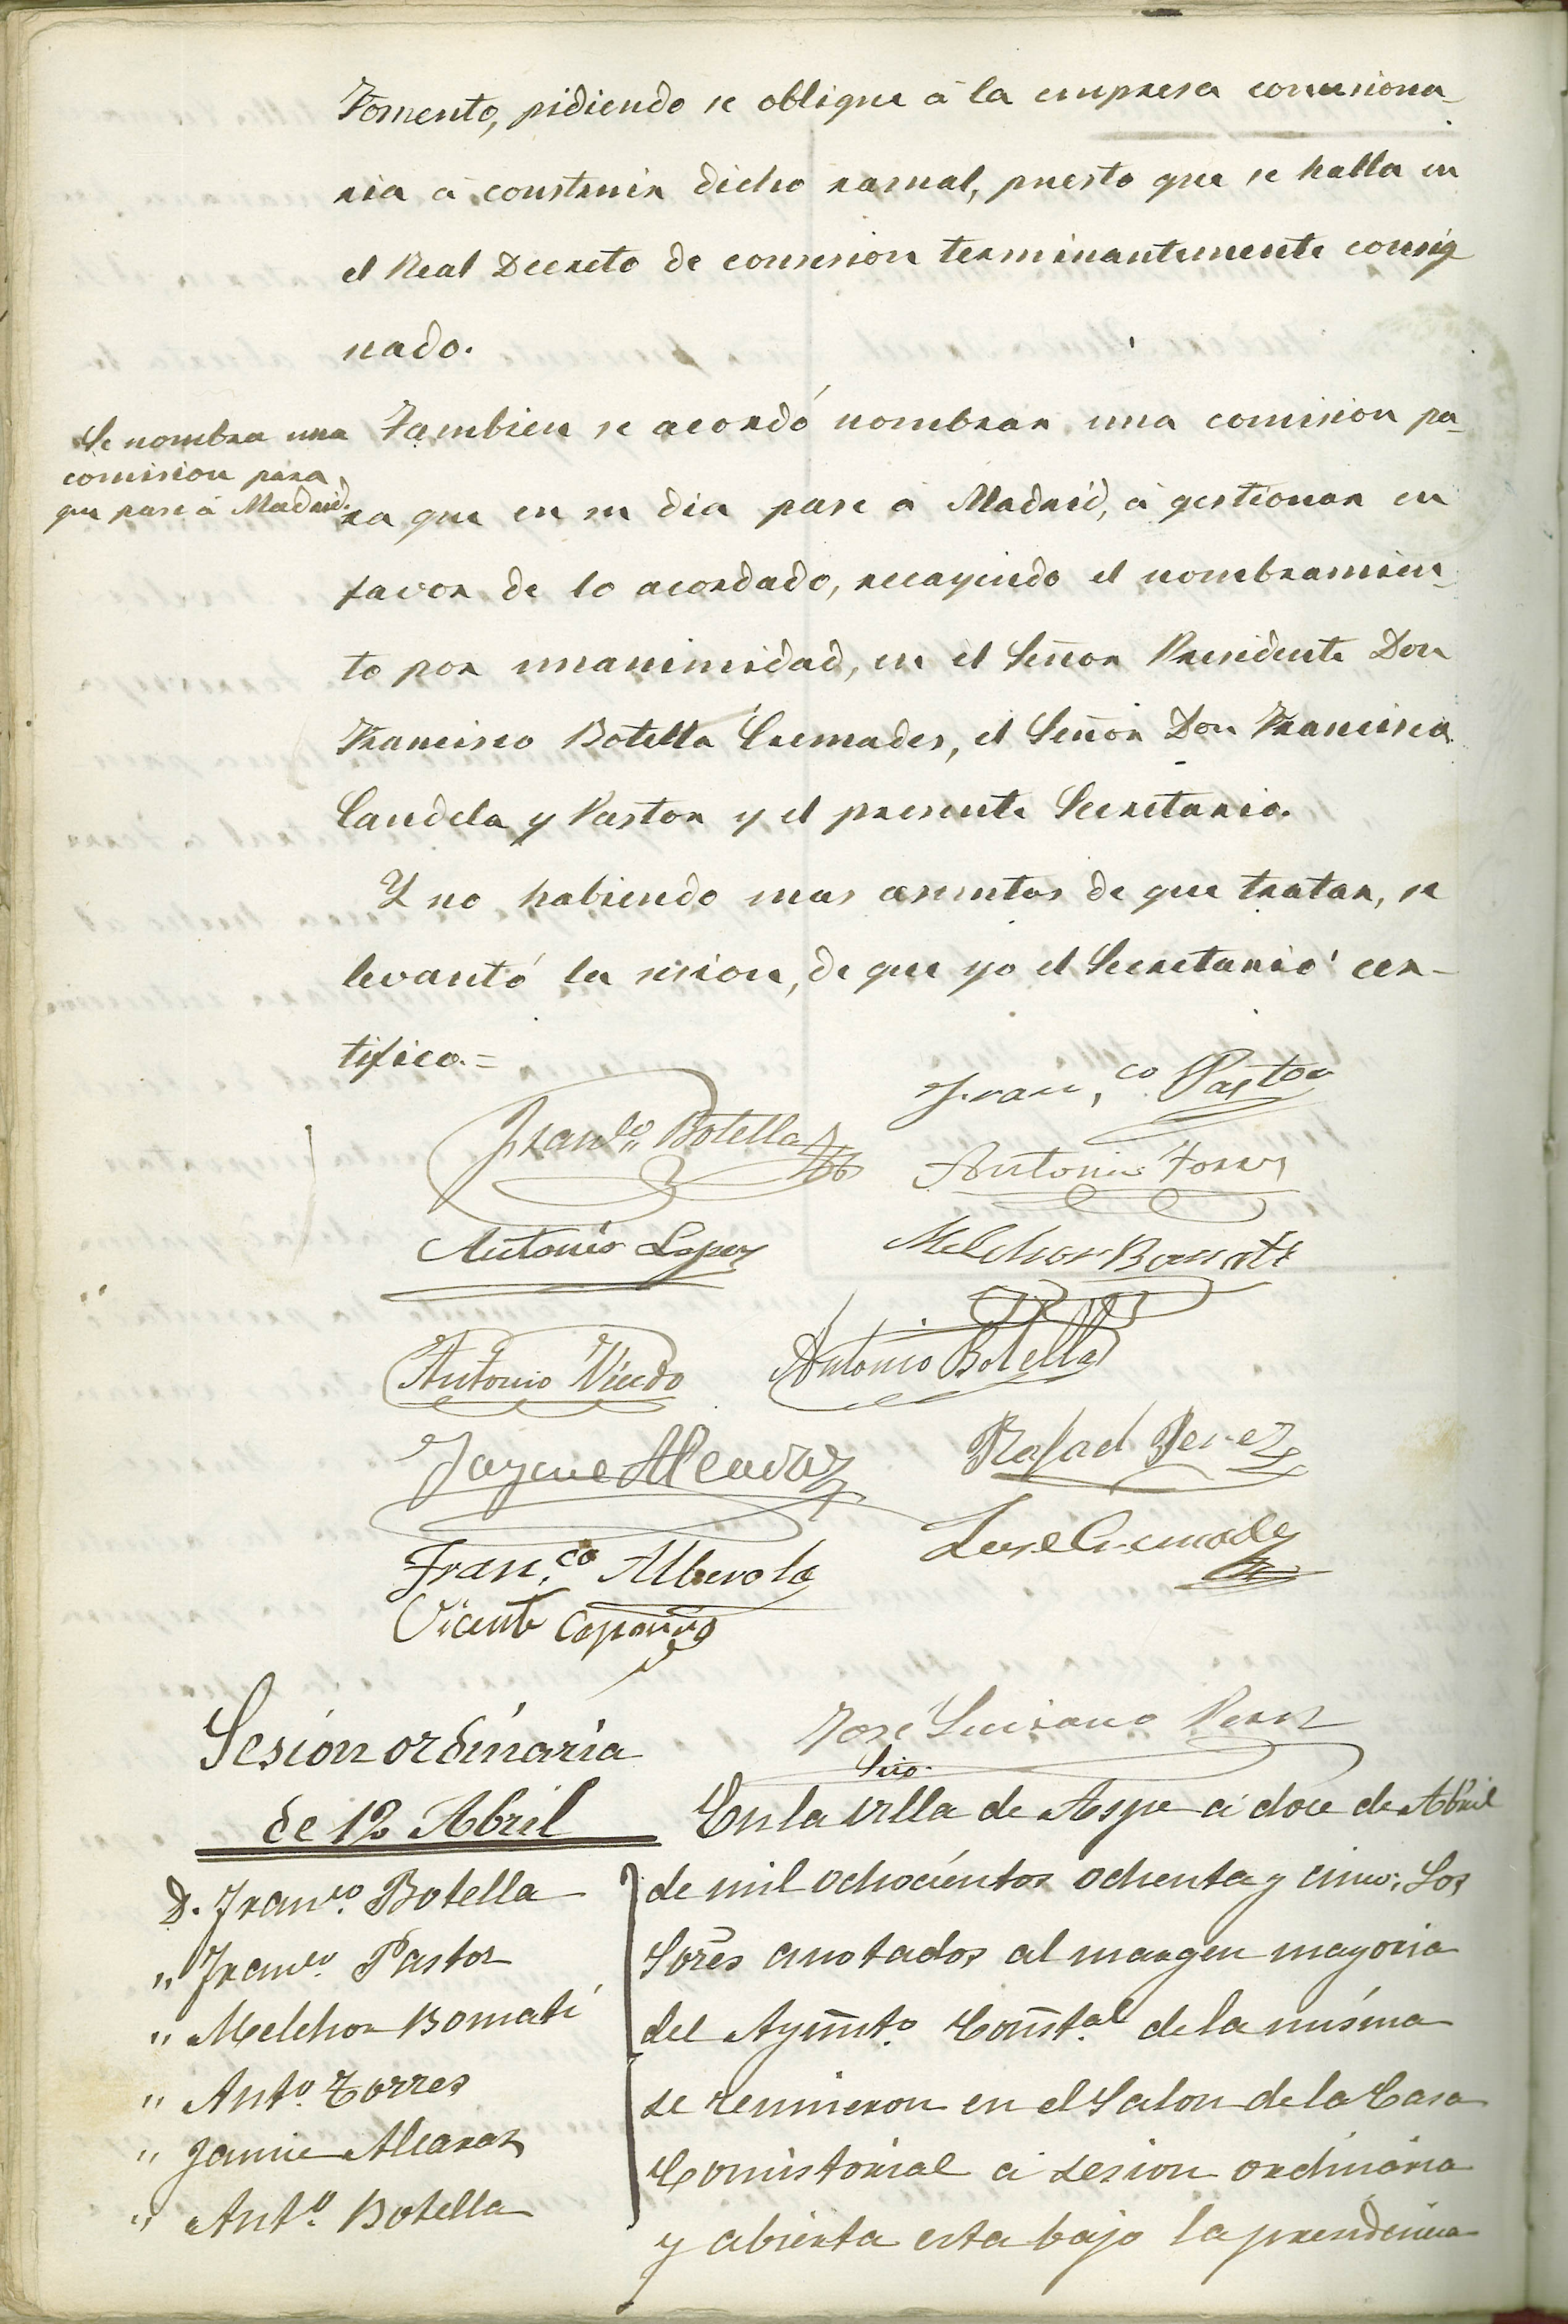 Fomento, pidiendo se obligue á la empresa concesiona-
ria á construir dicho ramal, puesto que se halla en
el Real Decreto de concesion terminantemente consig
nado.
Se nombra una
comision para
que pase á Madrid.
Tambien se acordó nombrar una comision pa-
ra que en su dia pase á Madrid, á gestionar en
favor de lo acordado, recayendo el nombramien-
to por unanimidad, en el Señor Presidente Don
Francisco Botella Cremades, el Señor Don Francisco
Candela y Pastor y el presente Secretario.
Y no habiendo mas asuntos de que tratar, se
levantó la sesion, de que yo el Secretario cer-
tifico.=
Fran.co Pastor
Franco. Botella
Antonio Torres
Antonio Lopez
Melchor Bomati
Antonio Viudo
Antonio Botella
Jayme Alcaraz
Rafael Perez
Fran.co Alberola
Jose Cremades
Vicente
José Luciano Perez
Srio.
Sesión ordinaria
de 12 Abril
D. Franco. Botella
" Franco. Pastor
" Melchor Bomatí
" Anto. Torres
" Jaime Alcaraz
" Anto. Botella
En la villa de Aspe á doce de Abril
de mil ochocientos ochenta y cinco; Los
Sores anotados al margen mayoria
del Ayumto. Constal. de la misma
se reunieron en el Salon de la Casa
Consistorial á sesion ordinaria
y abierta esta bajo la presidencia